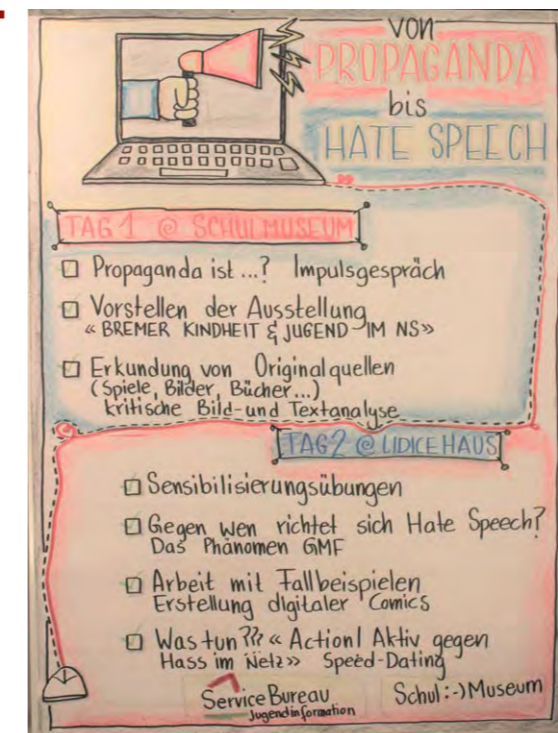 von
PROPAGANDA
bis
HATE SPEECH
TAG 1 @ SCHULMUSEUM
Propaganda ist ...? Impulsgespräch
Vorstellen der Ausstellung
« BREMER KINDHEIT & JUGEND IM NS»
Erkundung von Originalquellen
(Spiele, Bilder, Bücher...)
kritische Bild- und Textanalyse
TAG 2 @ LIDICEHAUS
Sensibilisierungsübungen
Gegen wen richtet sich Hate Speech?
Das Phänomen GMF
Arbeit mit Fallbeispielen
Erstellung digitaler Comics
Was tun??? « Action! Aktiv gegen
Hass im Netz» Speed-Dating
ServiceBureau
Jugendinformation
Schul:-)Museum